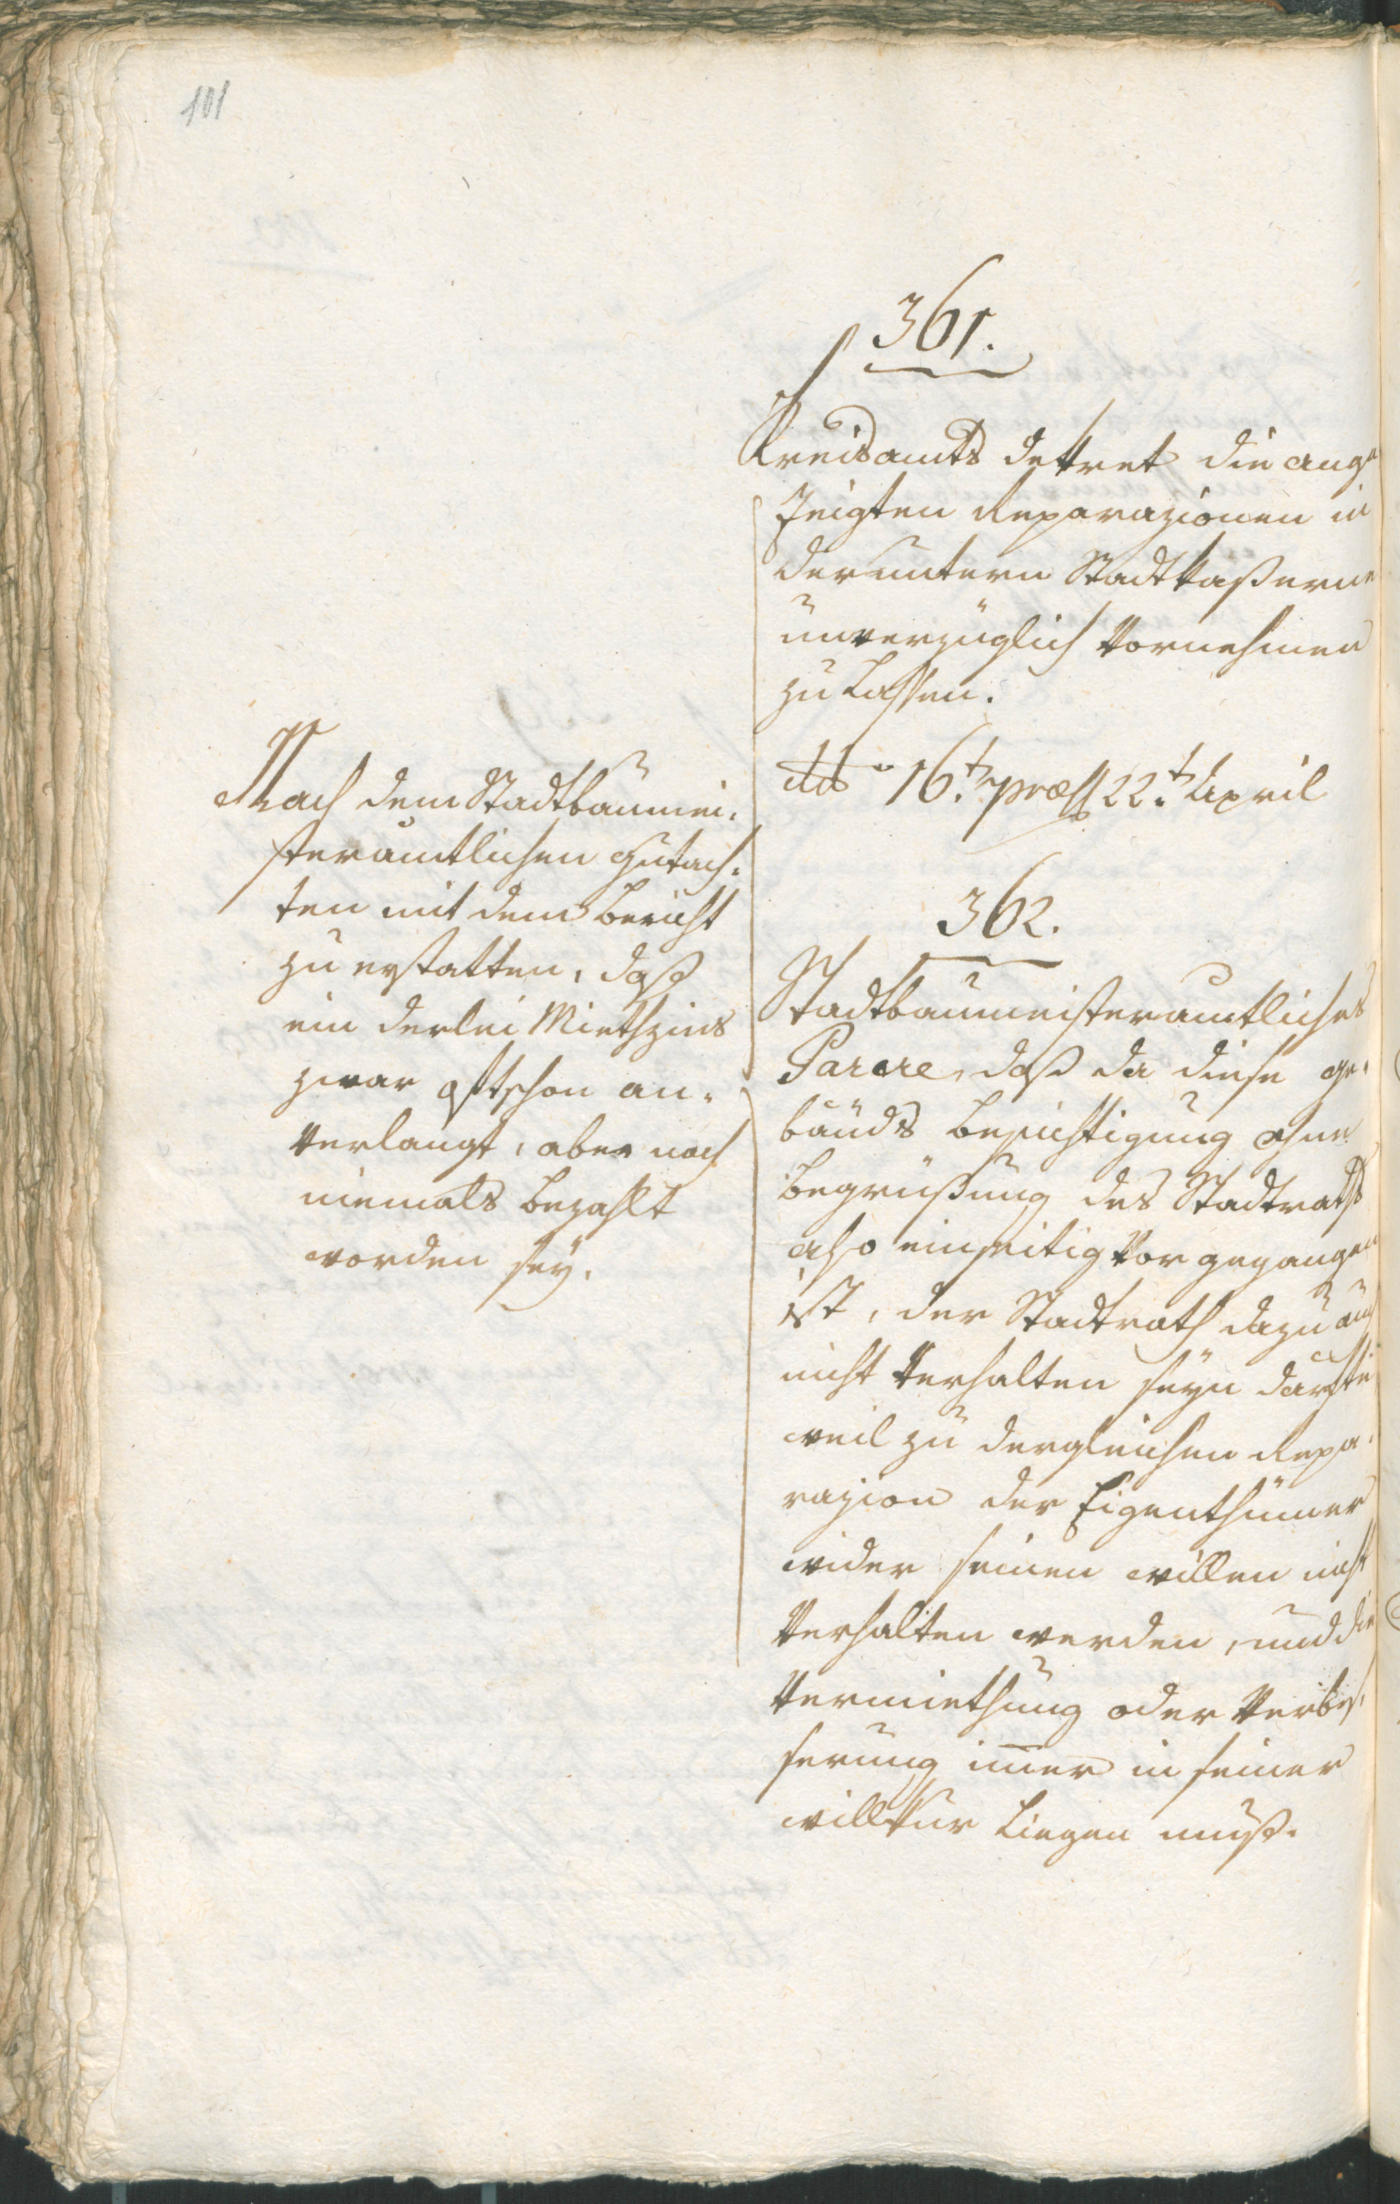 101
361.
Kreisamts dekret die ange
zeigten Reparazionen in
der untern Stadtkaßerne
unverzüglich vornehmen
zu Lassen.
ddo 16.t præs 22.t April
Nach dem Stadtbaumei-
steramtlichen Gutach-
ten mit dem Bericht
zu erstatten, daß
ein derlei Miethzins
zwar oft schon an-
verlangt, aber noch
niemals bezahlt
worden seÿ.
362.
Stadtbaumeisteramtliches
Parere, daß da diese ge-
bäuds besichtigung ohne
begrüßung des Stadtraths
also einseitig vor gegangen
ist, der Stadtrath dazu auch
nicht verhalten seÿn dürfte
weil zu dergleichen Repa-
razion der Eigenthümer
wider seinen willen nicht
verhalten werden, und die
Vermiethung oder Verbes-
serung im̄er in seiner
willkur Liegen muß.